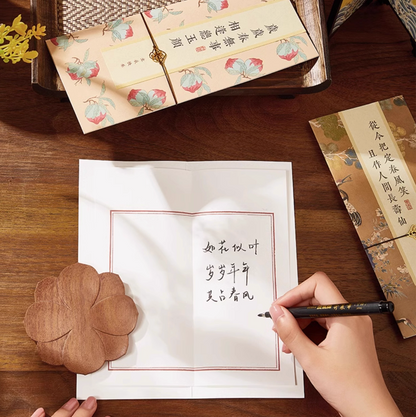 歲歲春無事
相逢總玉顏
從今把定春風笑
且作人間長壽仙
如花似叶
岁岁年年
共占春风